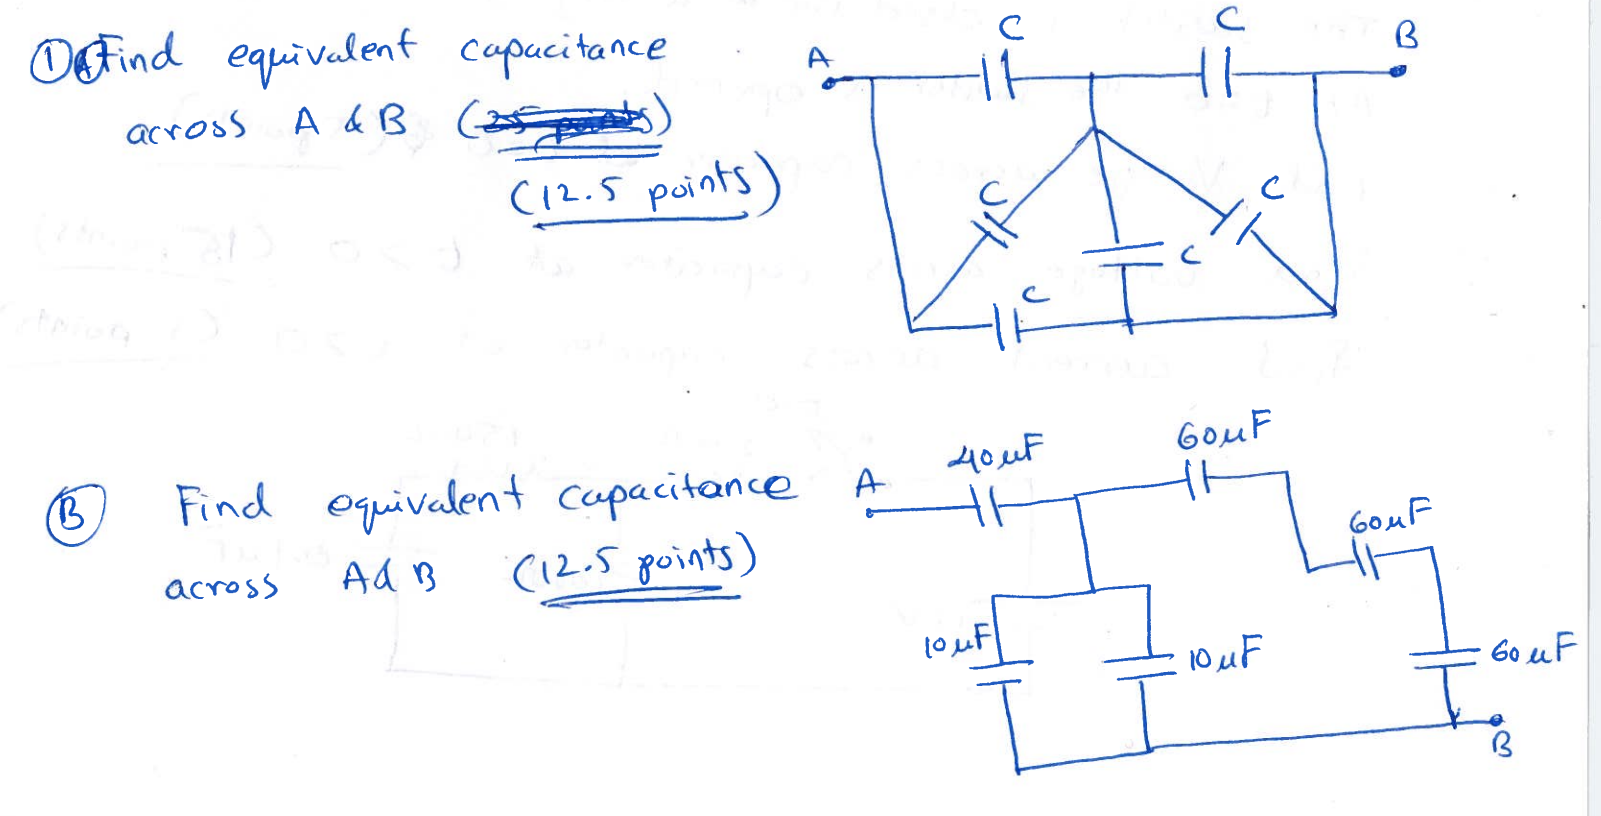 ① A Find equivalent capacitance
across A & B (25 points)
(12.5 points)
A C C B
C C C
C
Ⓑ Find equivalent capacitance
across A & B (12.5 points)
A 40uF 60uF
60uF
10uF 10uF 60uF
B